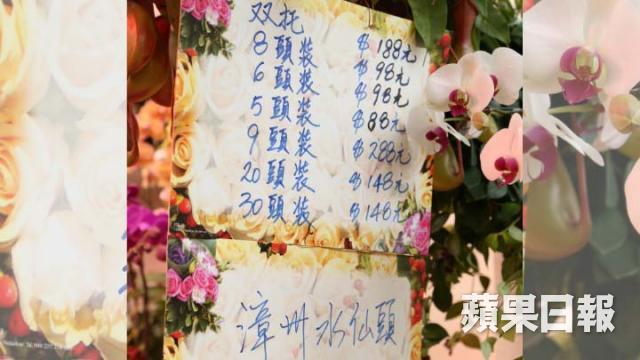 双托
8頭裝 $188元
6頭裝 $98元
5頭裝 $98元
9頭裝 $88元
20頭裝 $288元
30頭裝 $148元
$148元
漳州水仙頭
蘋果日報